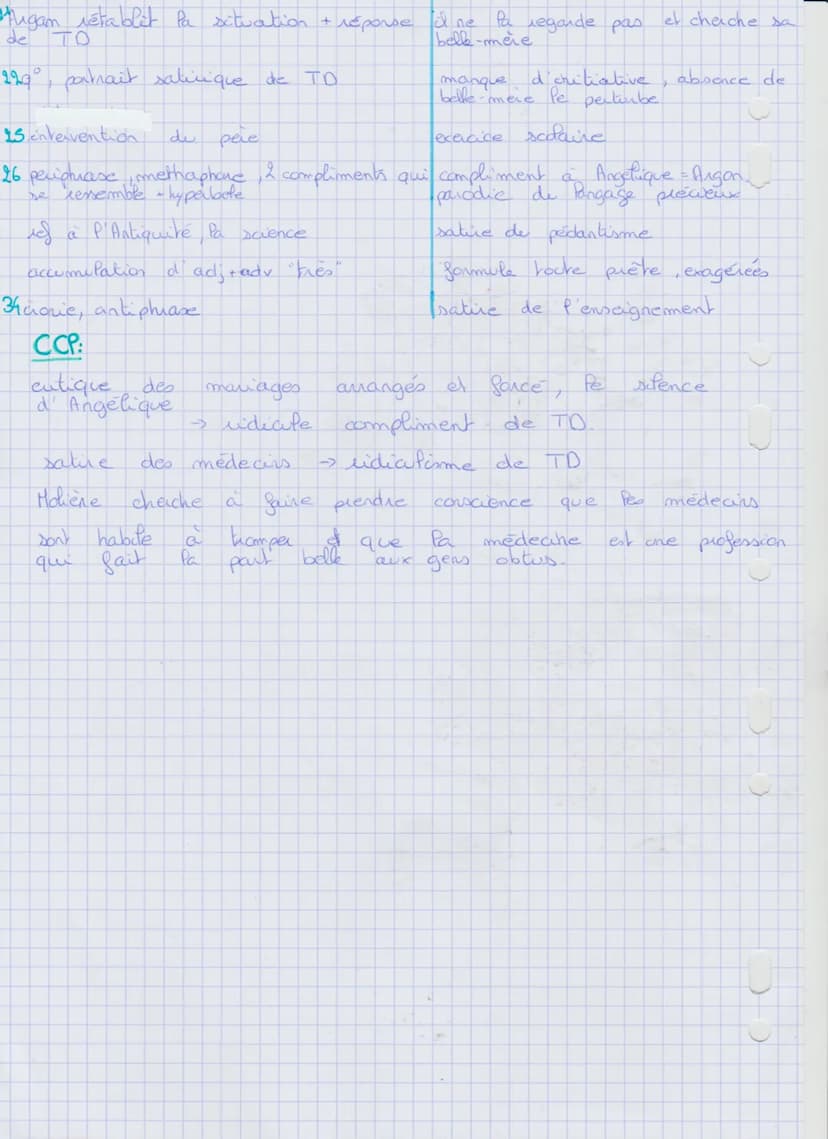 Argam rétablit la situation + réponse il ne la regarde pas et cherche sa
de TD belle-mère
22 g°, portrait satirique de TD manque d'initiative, absence de
belle-mère le perturbe
25 intervention du père exercice scolaire
26 périphrase, méthaphore, 2 compliments qui compliment à Angélique = Argan
se ressemble - hyperbole parodie de langage précieux
ref à l'Antiquité, la science satire du pédantisme
accumulation d'adj + adv "très" formule toute prête, exagérées
34 ironie, antiphrase satire de l'enseignement
CCP:
critique des mariages arrangés et forcé, le silence
d'Angélique
→ ridicule compliment de TD.
satire des médecins → ridiculisme de TD
Molière cherche à faire prendre conscience que les médecins
sont habile à tromper et que la médecine est une profession
qui fait la part belle aux gens obtus.